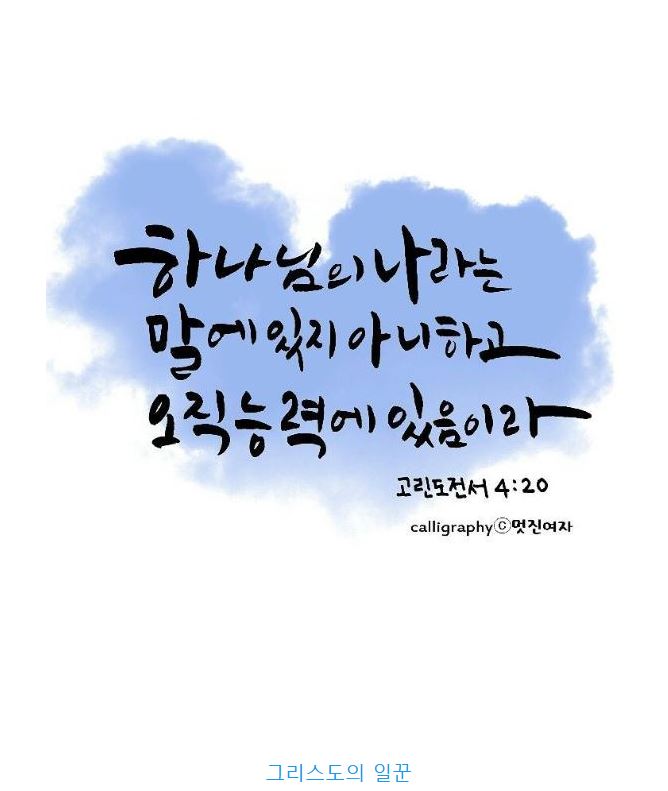 하나님의 나라는
말에 있지 아니하고
오직 능력에 있음이라
고린도전서 4:20
calligraphyⓒ멋진여자
그리스도의 일꾼